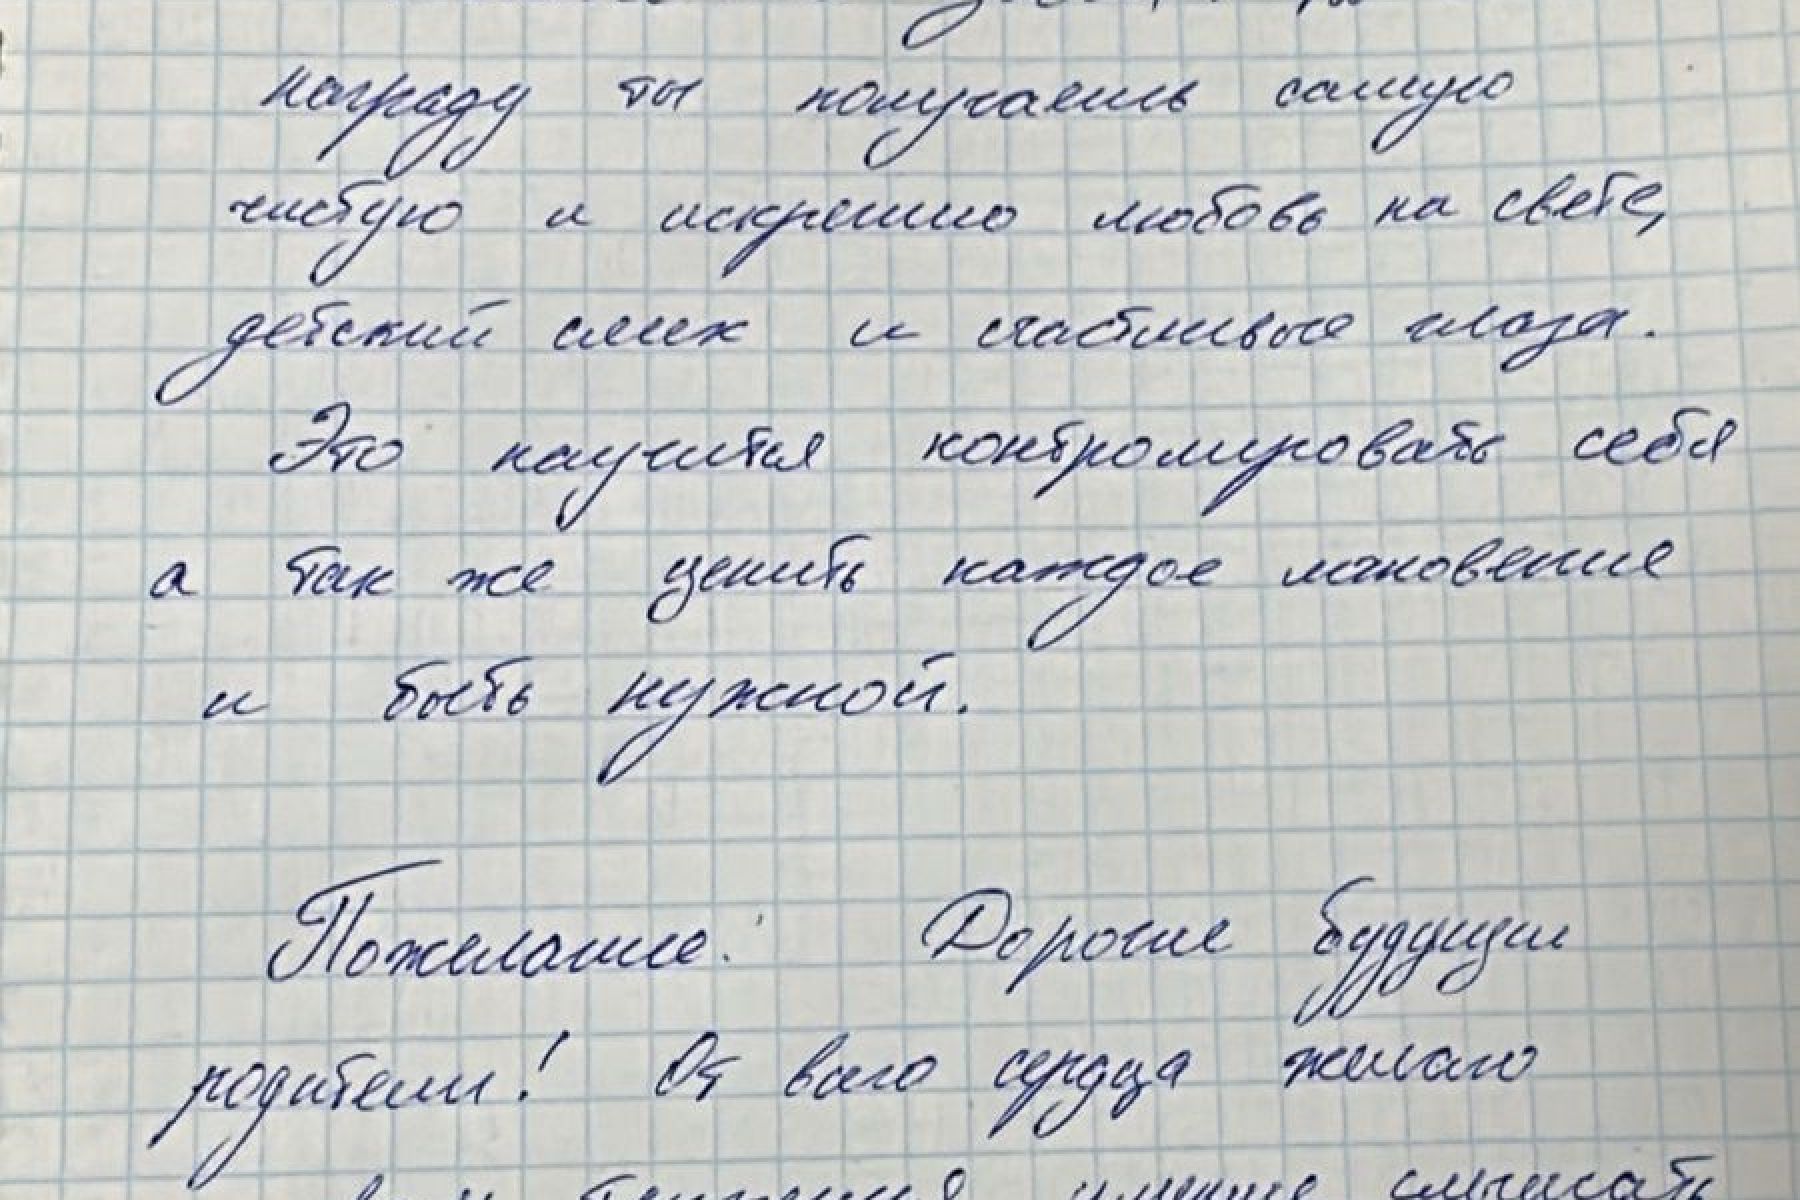 награду ты получаешь самую
чистую и искреннюю любовь на свете,
детский смех и счастливые глаза.
Это научится контролировать себя
а так же ценить каждое мгновение
и быть нужной.
Пожелание: Дорогие будущии
родители! От всего сердца желаю
терпения, слышать